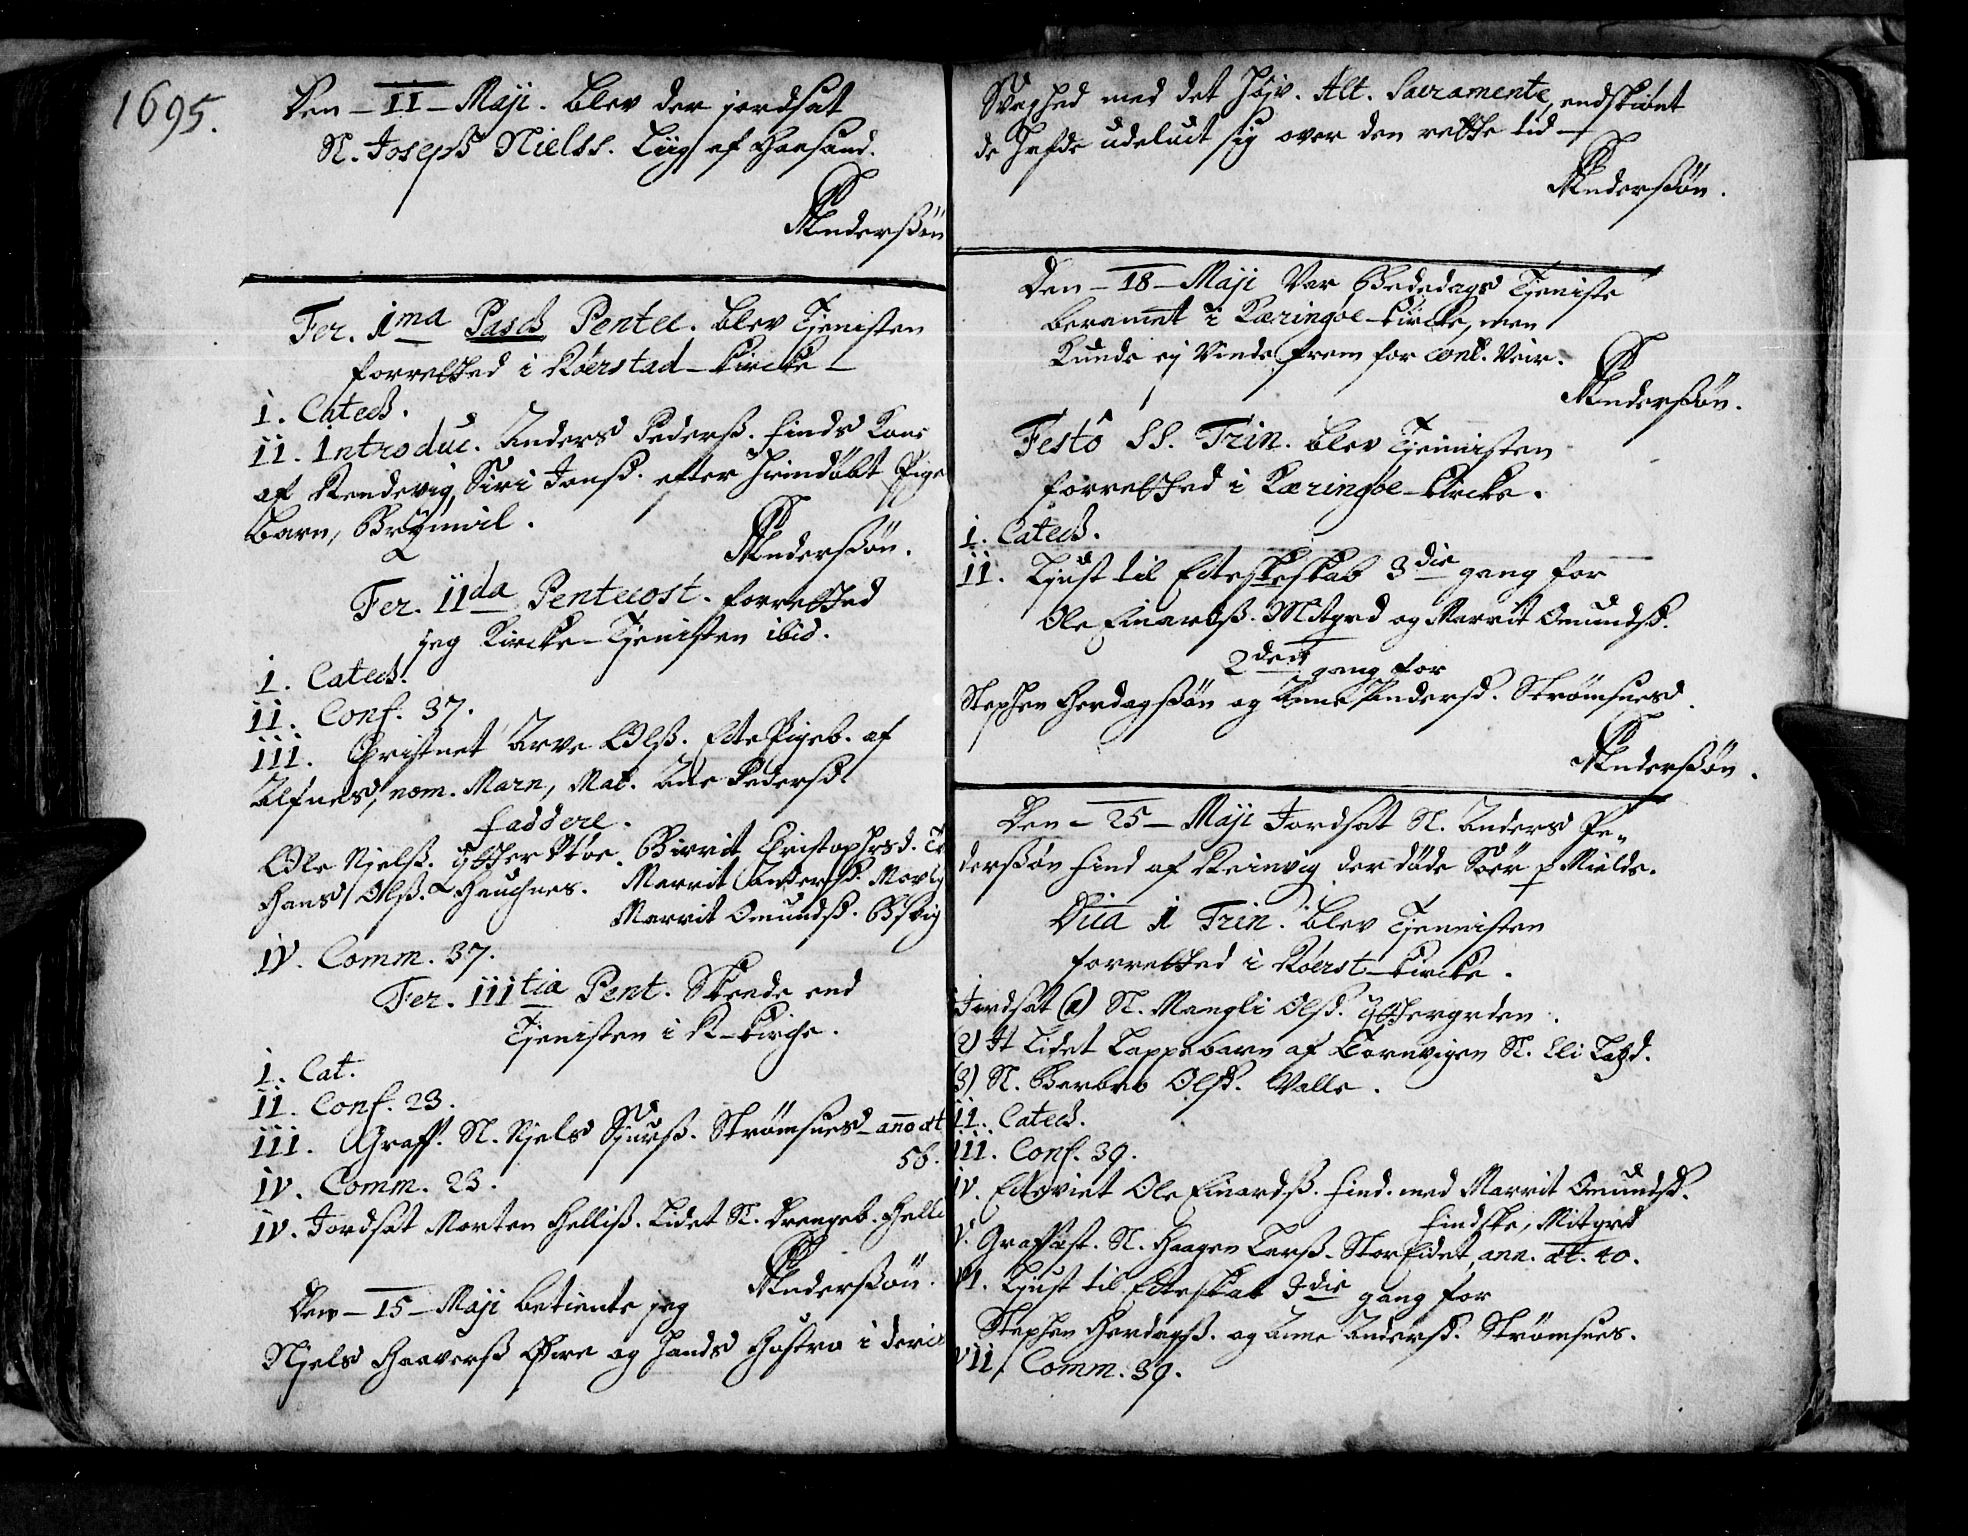 1695.
Den - II - Maji. blev der jordsat
N. Joseph Nielss. Liig af Haasand.
Anderssøn
Fer. 1ma Pasch Pentec. blev Tjenisten
forretted i Røerstad-kircke
I. Catech.
II. Introduc. Anders Pederss. finds Kone
af Rendevig, Siri Jonsd. efter hiemdøbt Pige
barn, Brynnil.
Anderssøn.
Fer. IIda Pentecost. forretted
jeg Kircke-Tjenisten ibid.
I. Catech.
II. Conf. 37.
III. Christnet Arve Olss. Ecte Pigeb. af
Alfnes, nom. Marn, Mat. Ane Pedersd.
faddere.
Ole Njelss. ytterstøe. Birrit Christophrsd.
Hans Olss. Hauchnes. Marrit Andersd.
Marrit Omundsd.
IV. Comm. 37.
Fer. IIItia Pent. Skeede end
Tjenisten i R-kirche.
I. Cat.
II. Conf. 23.
III. Graff. N. Njels Sjurss. Strømsnes - ano æt
58.
IV. Comm. 23.
IV. Jordsat Morten Helliss. Lidet N. Drengeb.
Anderssøn.
Den - 15 - Maji betiente jeg
Njels Haaverss Øire og hands Hustro i deris
Svaghed med det Højv. Alt. Sacramente, endskiønt
de hafde udeluct sig over den rette tid
Anderssøn.
Den - 18 - Maji Var Bededags Tjeniste
beramet i Kæringøe-kircke, men
kunde ej vinde frem for cont. Veir.
Anderssøn.
Festo SS. Trin. blev Tjennisten
forretted i Kæringøe-kircke.
I. Catech.
II. Liust til Ecteskeskab 3die gang for
Ole Einardss. Mitgrd og Marrit Omundsd.
2den gang for
Stephen Herdagssøn og Anne Andersd. Strømsnes.
Anderssøn.
Den - 25 - Maji Jordsat N. Anders Pe-
derssøn find af Reinvig der døde Søer p Mielde.
Dica 1 Trin. blev Tjennisten
forretted i Røerst-kircke.
Jordsat (1) N. Mangli Olsd. yttergrden.
(2) It Lidet Lappebarn af Tornvigen N. Eli
(3) N. Barbro Olsd. Valle.
II. Catech.
III. Conf. 39.
IV. Ecteviet Ole Einardss. find. med Marrit Omundsd.
findske, Mitgrd
V. Graffæst. N. Haagen Larss. Storeidet, ann. æt. 40.
VI. Liust til Ecteskab 3die gang for
Stephen Herdagss. og Anne Andersd. Strømsnes.
VII. Comm. 39.